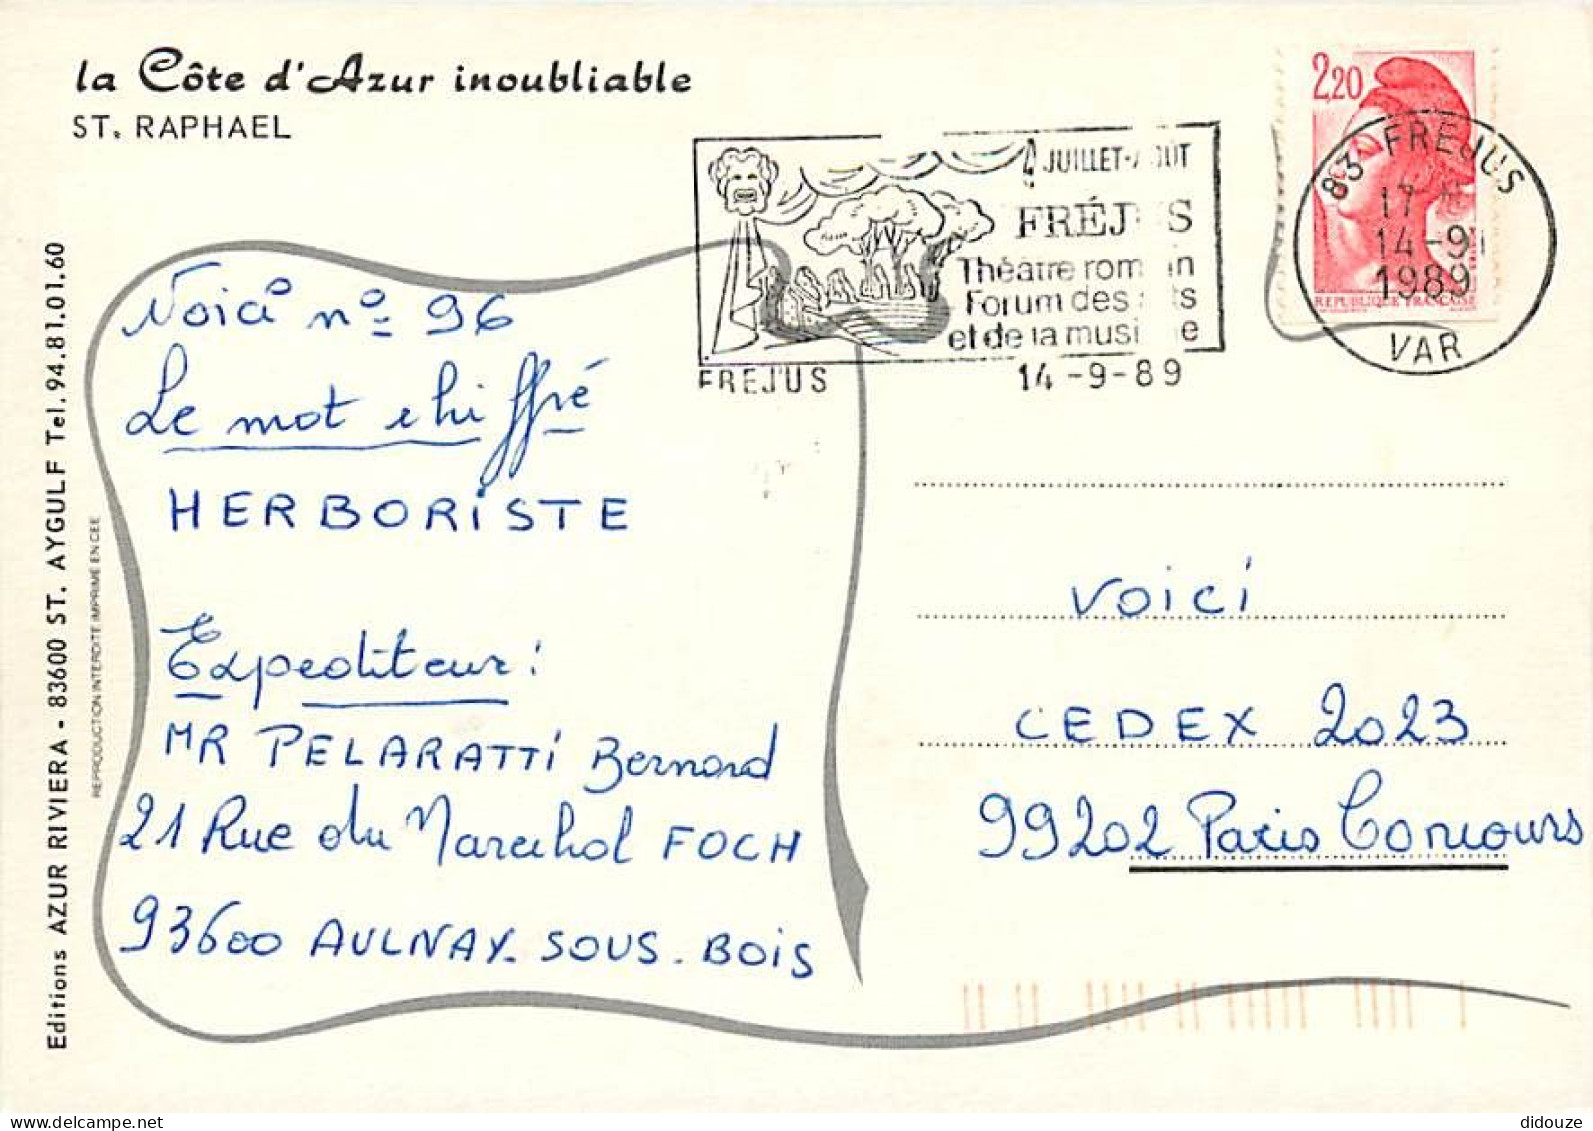 la Côte d'Azur inoubliable
ST. RAPHAEL
2,20
REPUBLIQUE FRANÇAISE
JUILLET-AOÛT
FRÉJUS
Théâtre romain
Forum des arts
et de la musique
FREJUS
14-9-89
83 FREJUS
17
14-9
1989
VAR
Voici nº 96
Le mot chiffré
HERBORISTE
Expediteur:
MR PELARATTI Bernard
21 Rue du Marechal FOCH
93600 AULNAY-SOUS-BOIS
VOICI
CEDEX 2023
99202 Paris Concours
Editions AZUR RIVIERA - 83600 ST. AYGULF Tel. 94.81.01.60
REPRODUCTION INTERDITE IMPRIME EN CEE
didouze